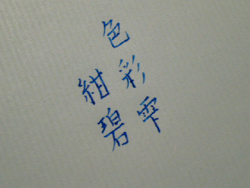 色彩雫
紺碧